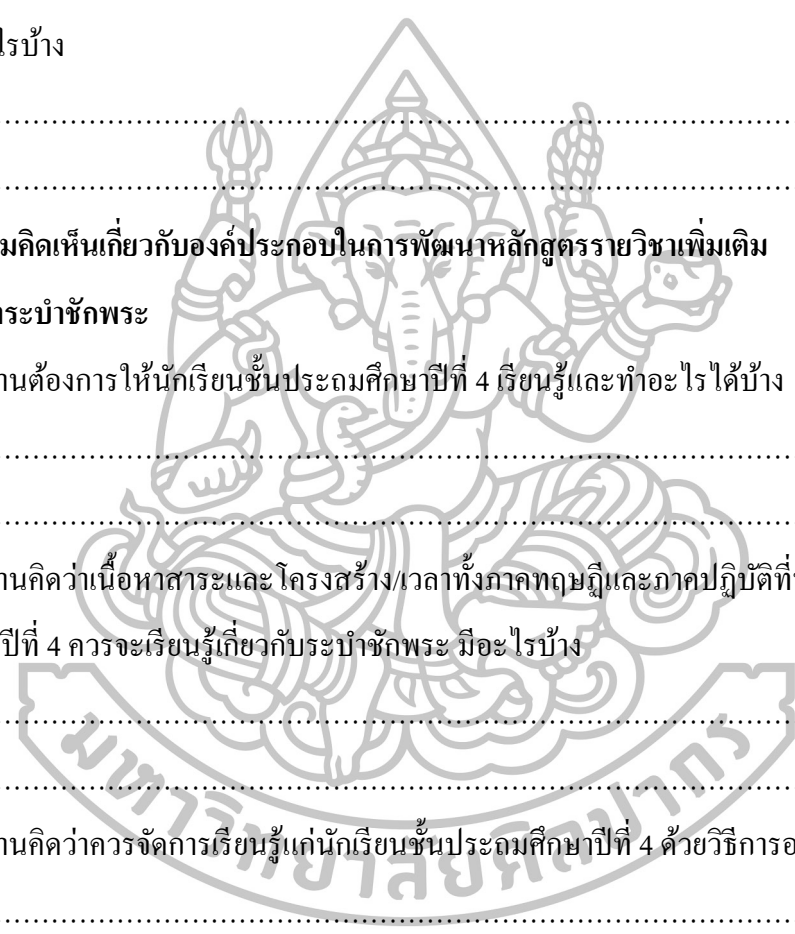 ไรบ้าง
................................................................................................
................................................................................................
มคิดเห็นเกี่ยวกับองค์ประกอบในการพัฒนาหลักสูตรรายวิชาเพิ่มเติม
ระบำชักพระ
านต้องการให้นักเรียนชั้นประถมศึกษาปีที่ 4 เรียนรู้และทำอะไรได้บ้าง
................................................................................................
................................................................................................
านคิดว่าเนื้อหาสาระและโครงสร้าง/เวลาทั้งภาคทฤษฎีและภาคปฏิบัติที่
ปีที่ 4 ควรจะเรียนรู้เกี่ยวกับระบำชักพระ มีอะไรบ้าง
................................................................................................
................................................................................................
านคิดว่าควรจัดการเรียนรู้แก่นักเรียนชั้นประถมศึกษาปีที่ 4 ด้วยวิธีการอ
................................................................................................
มหาวิทยาลัยศิลปากร